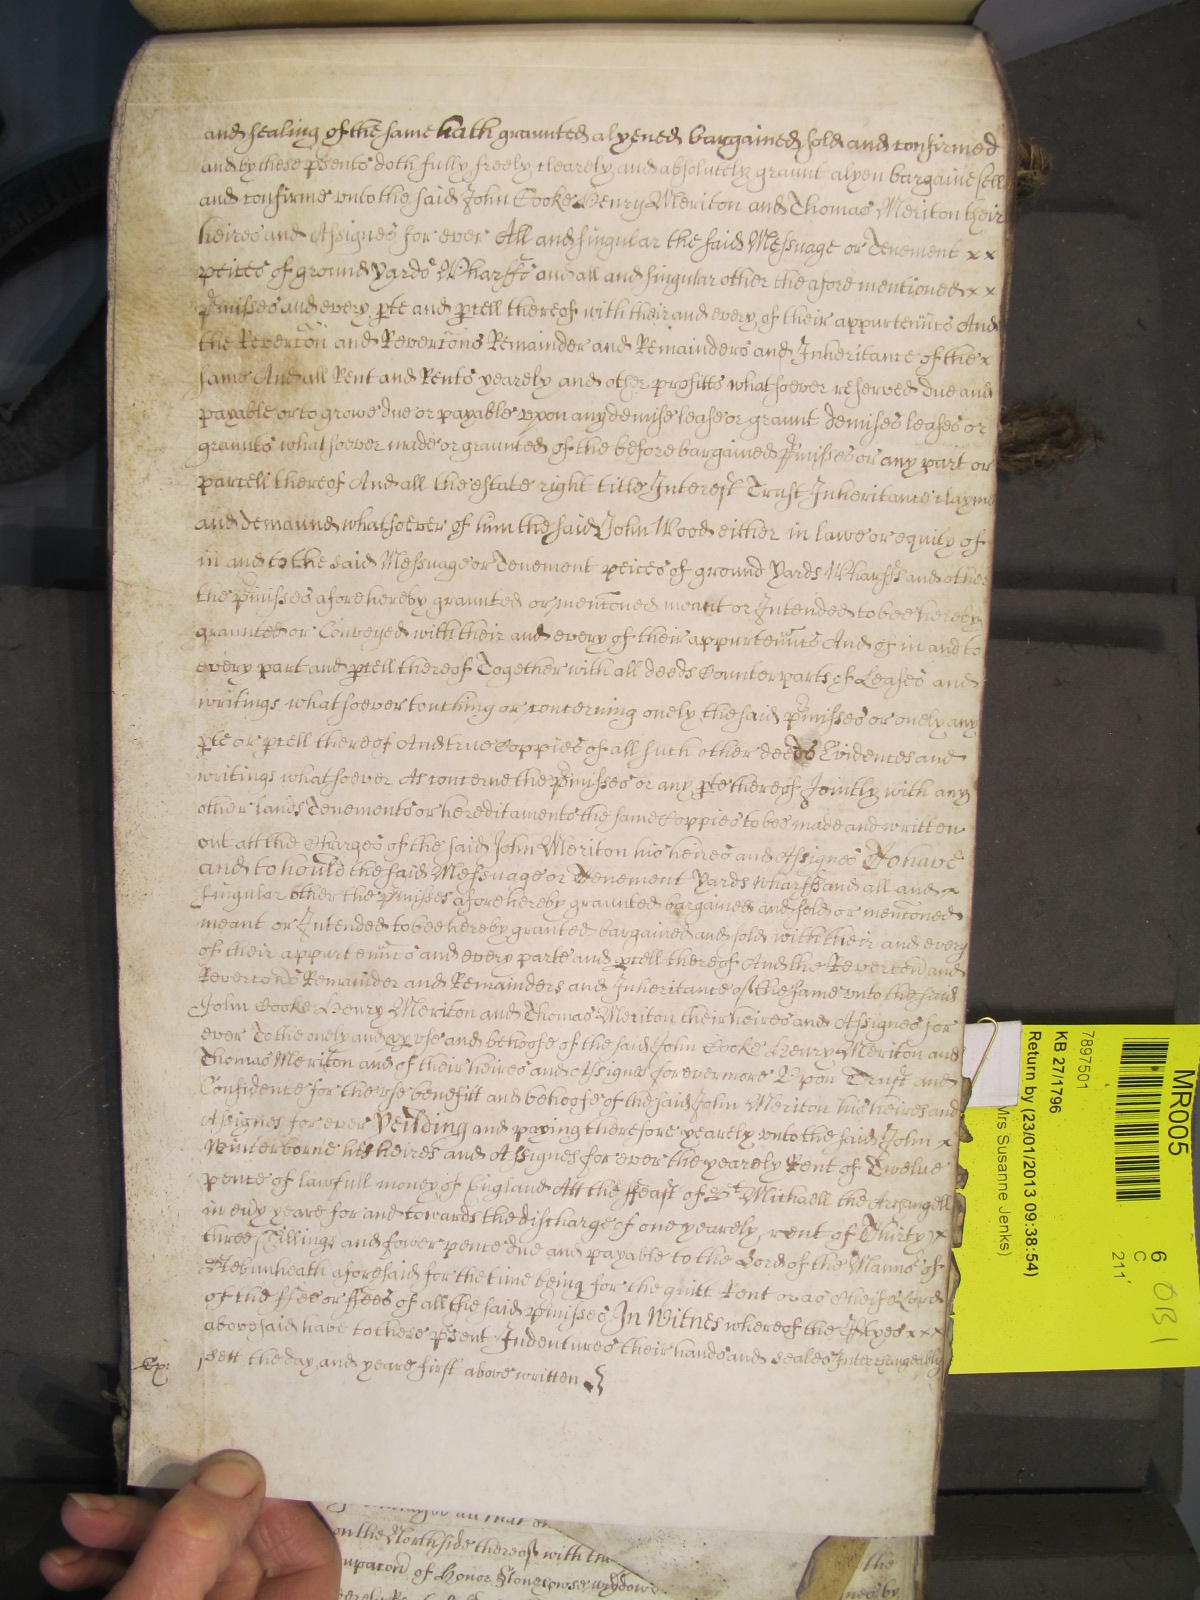 and sealing of the same hath graunted alyened bargained sold and confirmed
and by these p̱sents doth fully freely clearely and absolutely graunt alyen bargaine sell
and confirme vnto the said John Cooke Henry Meriton and Thomas Meriton their
heires and Assignes for ever All and singular the said Messuage or Tenement x x
peices of ground Yards Wharffs and all and singular other the afore mentioned x x
p̱misses and every p̱te and p̱cell thereof with their and every of their appurtenn̄cs And
the Revercōn and Revercōns Remainder and Remainders and Inheritance of the x
same And all Rent and Rents yearely and other profitts whatsoever reserved due and
payable or to growe due or payable vpon any demise lease or graunt demises leases or
graunts whatsoever made or graunted of the before bargained p̱misses or any part or
parcell thereof And all the estate right title Interest Trust Inheritance clayme
and demaund whatsoever of him the said John Wood either in lawe or equity of
in and to the said Messuage or Tenement peices of ground Yards Wharffs and other
the p̱misses afore hereby graunted or menc̄oned meant or Intended to bee hereby
graunted or Conveyed with their and every of their appurtenn̄cs And of in and to
every part and p̱cell thereof Together with all deeds Counterparts of Leases and
writings whatsoever touching or concerning onely the said p̱misses or onely any
p̱te or p̱cell thereof And true Coppies of all such other deeds Evidences and
writings whatsoever As concerne the p̱misses or any p̱te thereof Jointly with any
other lands Tenements or hereditaments the same Coppies to bee made and written
out att the Charges of the said John Meriton his heires and Assignes To have
and to hould the said Messuage or Tenement Yards wharffs and all and x
singular other the p̱misses afore hereby graunted bargained and sold or menc̄oned
meant or Intended to bee hereby granted bargained and sold with their and every
of their appurtenn̄cs and every parte and p̱cell thereof And the Revercōn and
Revercōns Remainder and Remainders and Inheritance of the same vnto the said
John Cooke Henry Meriton and Thomas Meriton their heires and Assignes for
ever To the onely and vse and behoofe of the said John Cooke Henry Meriton and
Thomas Meriton and of their heires and Assignes forevermore Vpon Trust and
Confidence for the vse benefitt and behoofe of the said John Meriton his heires and
Assignes for ever Yeilding and paying therefore yearely vnto the said John x
Winterborne his heires and Assignes for ever the yearely Rent of Twelue
pence of lawfull money of England Att the ffeast of St Michaell the Archangell
in ev̄y yeare for and towards the discharge of one yearely rent of Thirty x
three shillings and fower pence due and payable to the Lord of the Mannor of
Stebunheath aforesaid for the time being for the quitt Rent or as Cheife Lord
of the ffee or ffees of all the said p̱misses In Witnes whereof the p̱tyes x x x
abovesaid have to these p̱sent Indentures their hands and seales Interchangeably
Ex: sett the day and yeare first above written
on the Northside thereof with the
of Honor Stonehowse wyddow
the
MR005
7897501
KB 27/1796
Return by (23/01/2013 09:38:54)
Mrs Susanne Jenks)
6
C
211